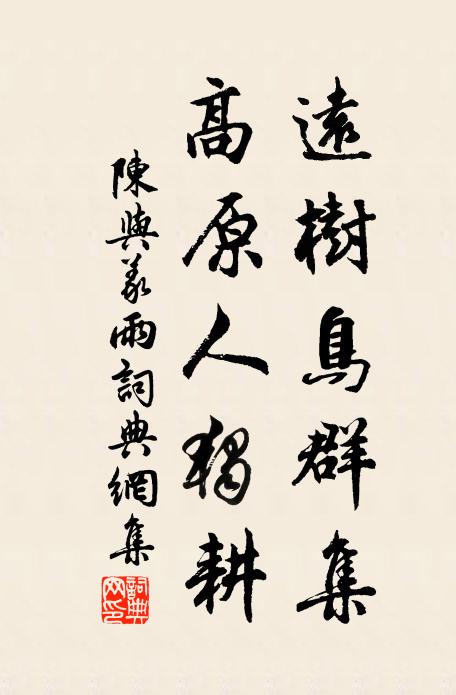 遠樹鳥群集
高原人獨耕
陳與義雨詞典網集
詞典網印